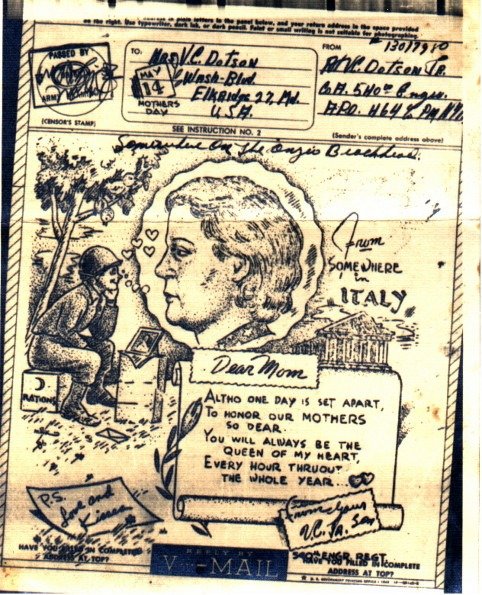 in plain letters in the panel below, and your return address in the space provided
on the right. Use typewriter, dark ink, or dark pencil. Faint or small writing is not suitable for photographing.
PASSED BY
ARMY
(CENSOR'S STAMP)
TO:
Mrs V.C. Dotson
Wash-Blvd.
Elkridge 27, Md.
U.S.A.
MAY
14
MOTHERS
DAY
FROM
Pvt V.C. Dotson Jr.
Co A. 540th Engrs.
A.P.O. 464 % PM N.Y.
SEE INSTRUCTION NO. 2
(Sender's complete address above)
Somewhere On The Anzio Beachhead.
From
SOMEWHERE
in
ITALY
Dear Mom
ALTHO ONE DAY IS SET APART,
TO HONOR OUR MOTHERS
SO DEAR.
YOU WILL ALWAYS BE THE
QUEEN OF MY HEART,
EVERY HOUR THRUOUT
THE WHOLE YEAR...
RATIONS
P.S.
Love and
Kisses
From your
V.C. Jr. Son
540 ENGR. REGT.
HAVE YOU FILLED IN COMPLETE
ADDRESS AT TOP?
REPLY BY
V···-MAIL
HAVE YOU FILLED IN COMPLETE
ADDRESS AT TOP?
U. S. GOVERNMENT PRINTING OFFICE